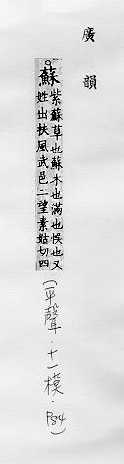 廣韻
蘇
紫蘇草也蘇木也滿也悮也又
姓出扶風武邑二望素姑切四
(平聲．十一模．P84)